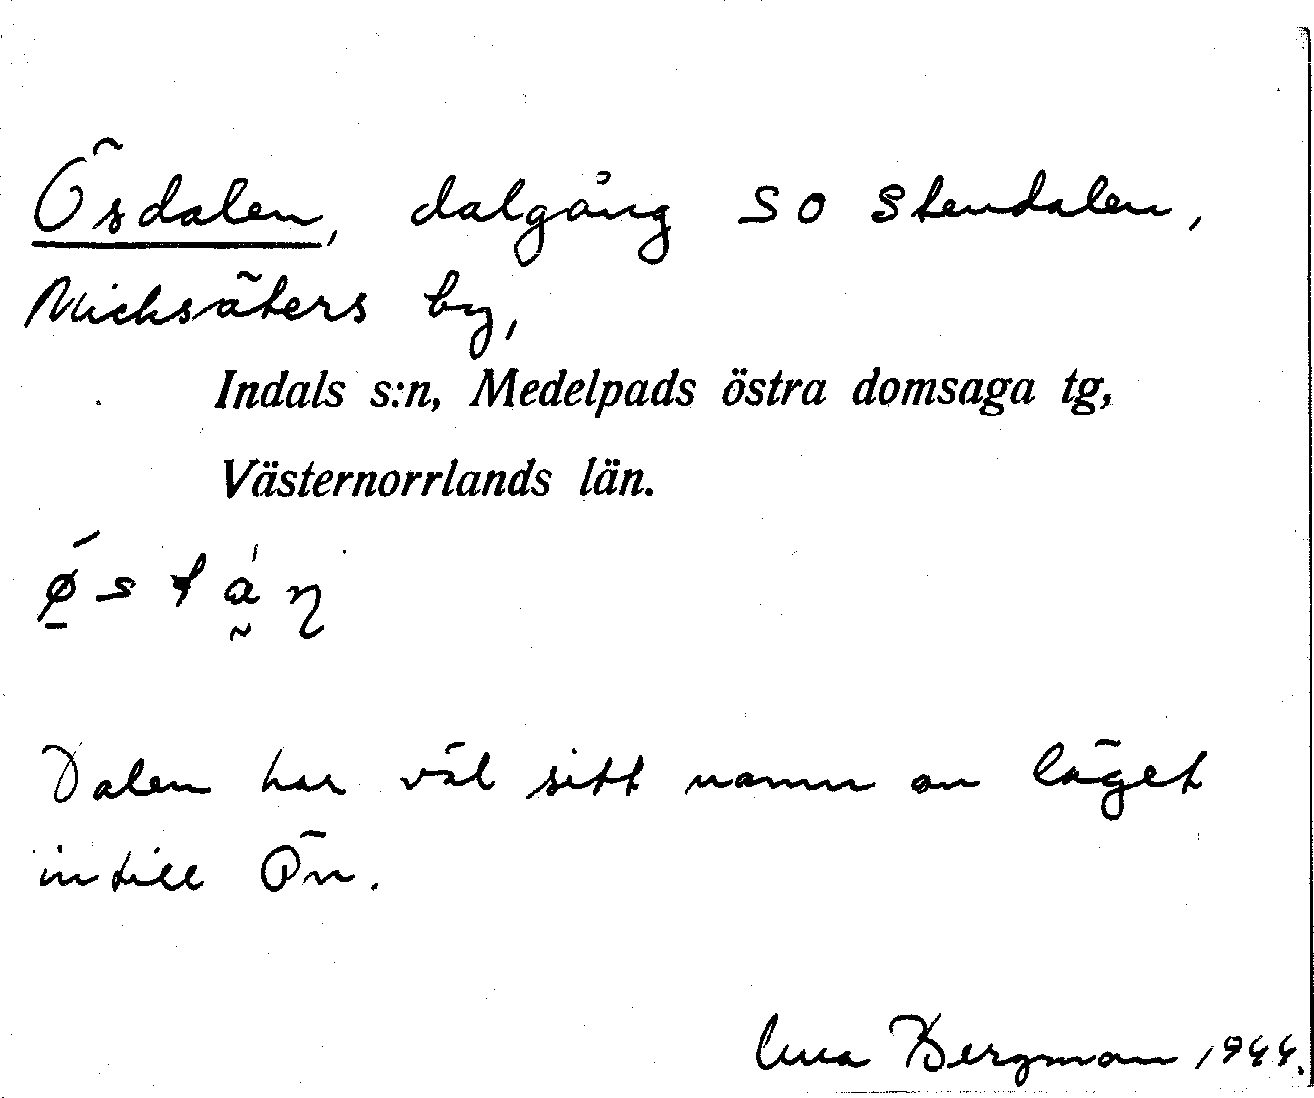 Ösdalen, dalgång SO Stendalen,
Micksäters by,
Indals s:n, Medelpads östra domsaga tg,
Västernorrlands län.
Dalen har väl sitt namn av läget
intill Ön.
Bergman 1944.